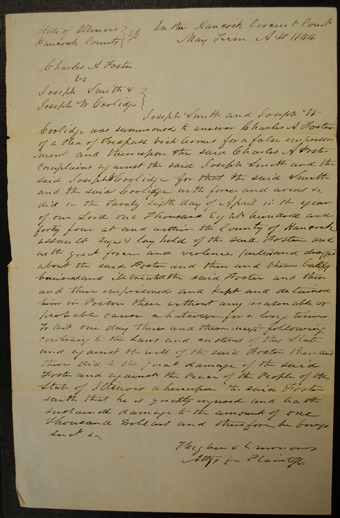 State of Illinois } In the Hancock Circuit Court
Hancock County } May Term A D 1844
Charles A Foster
vs
Joseph Smith &
Joseph W Coolidge
Joseph Smith and Joseph W
Coolidge was summoned to answer Charles A Foster
of a Plea of Trespass for a false imprison
ment and thereupon the said Charles A Foster
complains against the said Joseph Smith and the
said Joseph W Coolidge for that the said Smith
and the said Coolidge with force and arms &c
did on the Twenty sixth day of April in the year
of our Lord one Thousand Eight hundred and
forty four at and within the County of Hancock
assault lay hold of the said Foster and
with great force and violence pulled and dragged
about the said Foster and then and there
the said Foster and then
and there imprisoned and kept and detained
him in Prison there without any reasonable or
probable cause whatsoever for a long time
To wit one day then and there next following
contrary to the Laws and customs of this State
and against the will of the said Foster
there did to the great damage of the said
Foster and against the Peace of the People of the
State of Illinois whereupon the said Foster
saith that he is greatly injured and hath
sustained damage to the amount of one
Thousand Dollars and therefore he brings
suit &c
& Emmons
Attys for Plaintiff